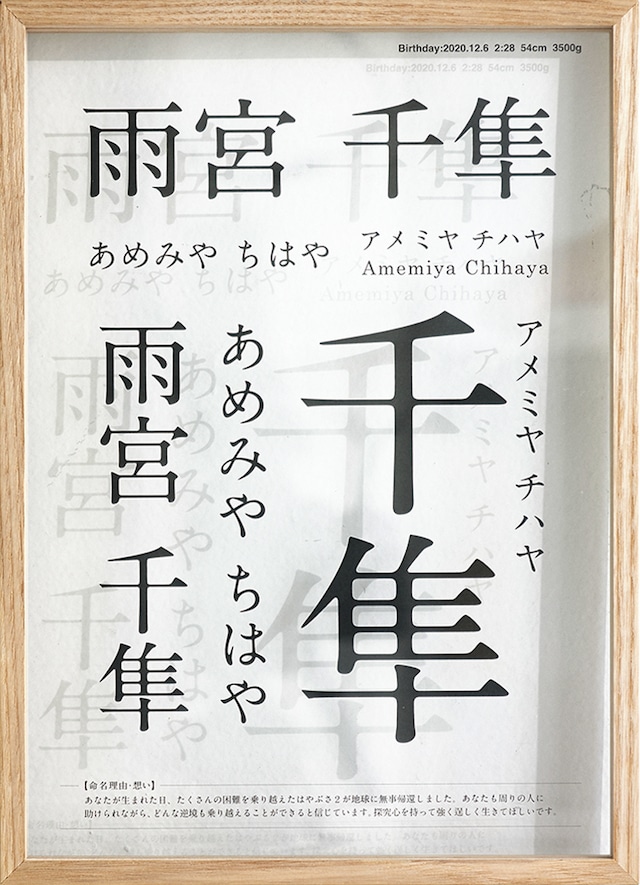 Birthday:2020.12.6 2:28 54cm 3500g
雨宮 千隼
あめみや ちはや
アメミヤ チハヤ
Amemiya Chihaya
アメミヤ チハヤ
千隼
あめみや ちはや
雨宮 千隼
【命名理由・想い】
あなたが生まれた日、たくさんの困難を乗り越えたはやぶさ2が地球に無事帰還しました。あなたも周りの人に
助けられながら、どんな逆境も乗り越えることができると信じています。探究心を持って強く逞しく生きてほしいです。